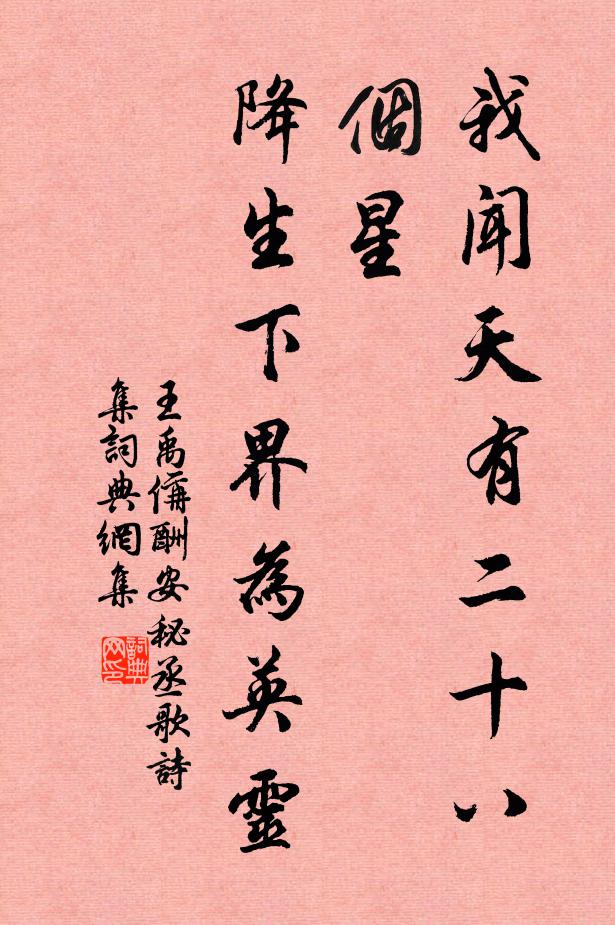 我聞天有二十八
個星
降生下界為英靈
王禹偁酬安秘丞歌詩
集詞典網集
詞典
网印